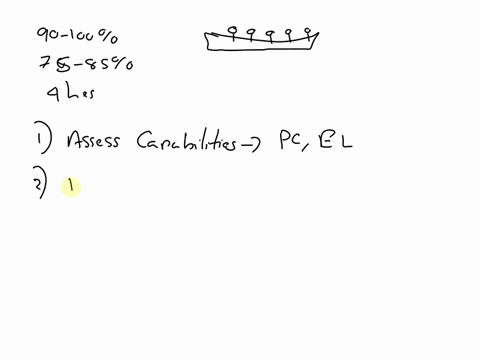 90-100%
75-85%
4 hrs
1) Assess Capabilities → PC, EL
2) I